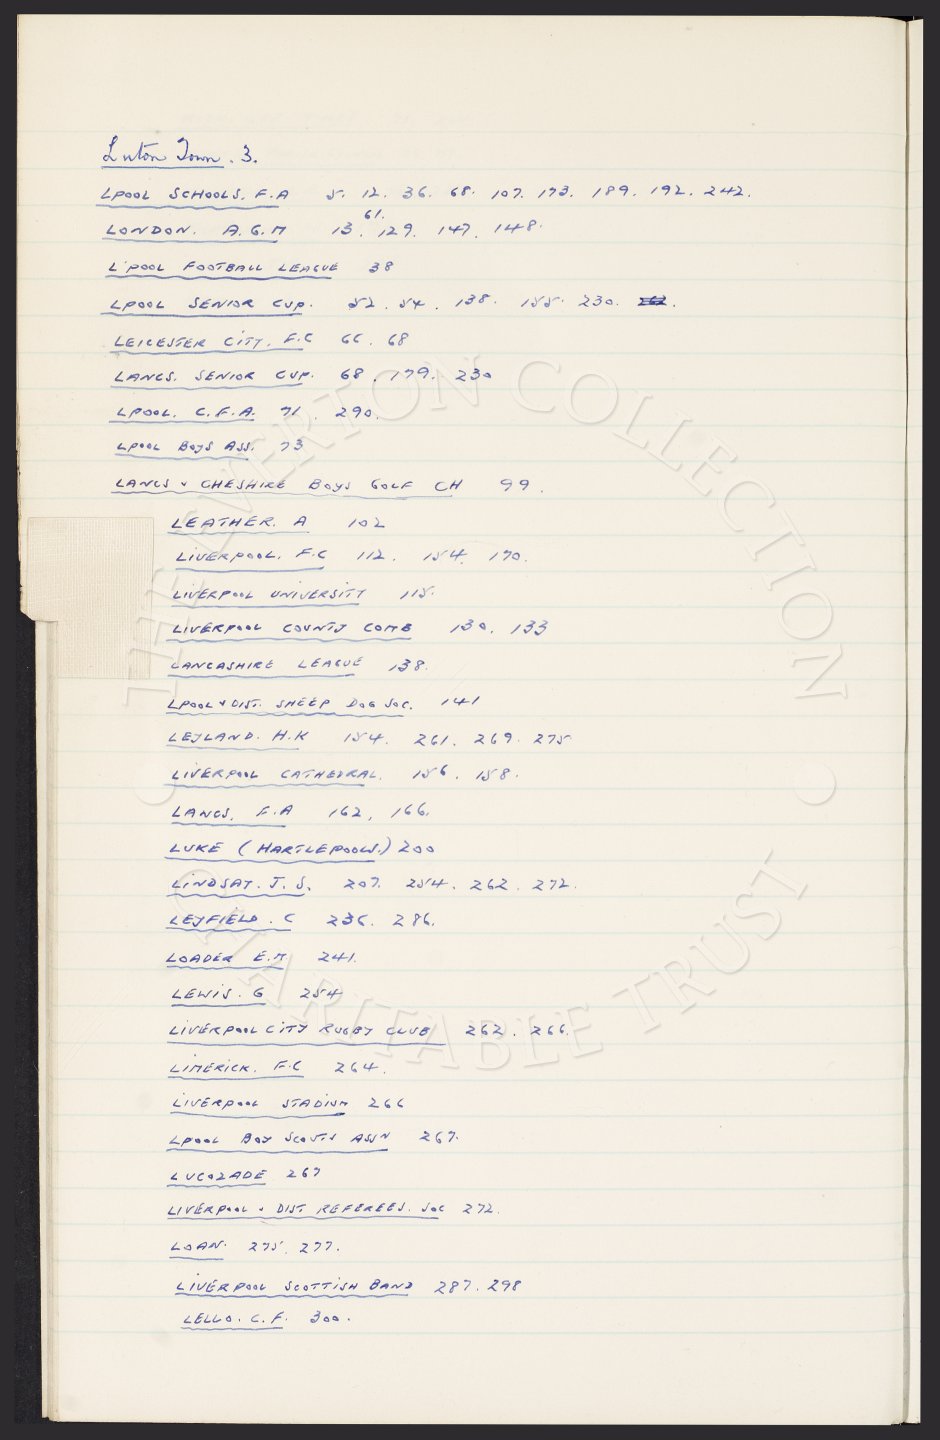 Luton Town. 3.
LPOOL SCHOOLS. F.A 5. 12. 36. 68. 107. 173. 189. 192. 242.
61.
LONDON. A.G.M 13. 129. 147. 148.
L'POOL FOOTBALL LEAGUE 38
LPOOL SENIOR CUP. 52. 54. 138. 155. 230.
LEICESTER CITY. F.C 66. 68
LANCS. SENIOR CUP. 68. 179. 230
LPOOL. C.F.A. 71. 290.
LPOOL BOYS ASS. 73
LANCS & CHESHIRE BOYS GOLF CH 99.
LEATHER. A 102
LIVERPOOL. F.C 112. 154. 170.
LIVERPOOL UNIVERSITY 115.
LIVERPOOL COUNTY COMB 130. 133
LANCASHIRE LEAGUE 138.
LPOOL & DIST. SHEEP DOG SOC. 141
LEYLAND. H.K 154. 261. 269. 275
LIVERPOOL CATHEDRAL. 156. 158.
LANCS. F.A 162, 166.
LUKE (HARTLEPOOLS.) 200
LINDSAY. J.S. 207. 254. 262. 272.
LEYFIELD. C 236. 286.
LOADER E.M 241.
LEWIS. G 254
LIVERPOOL CITY RUGBY CLUB 262. 266.
LIMERICK. F.C 264.
LIVERPOOL STADIUM 266
LPOOL BOY SCOUTS ASSN 267.
LUCOZADE 267
LIVERPOOL & DIST REFEREES. SOC 272.
LOAN. 275. 277.
LIVERPOOL SCOTTISH BAND 287. 298
LELLO. C.F. 300.
THE EVERTON COLLECTION
CHARITABLE TRUST